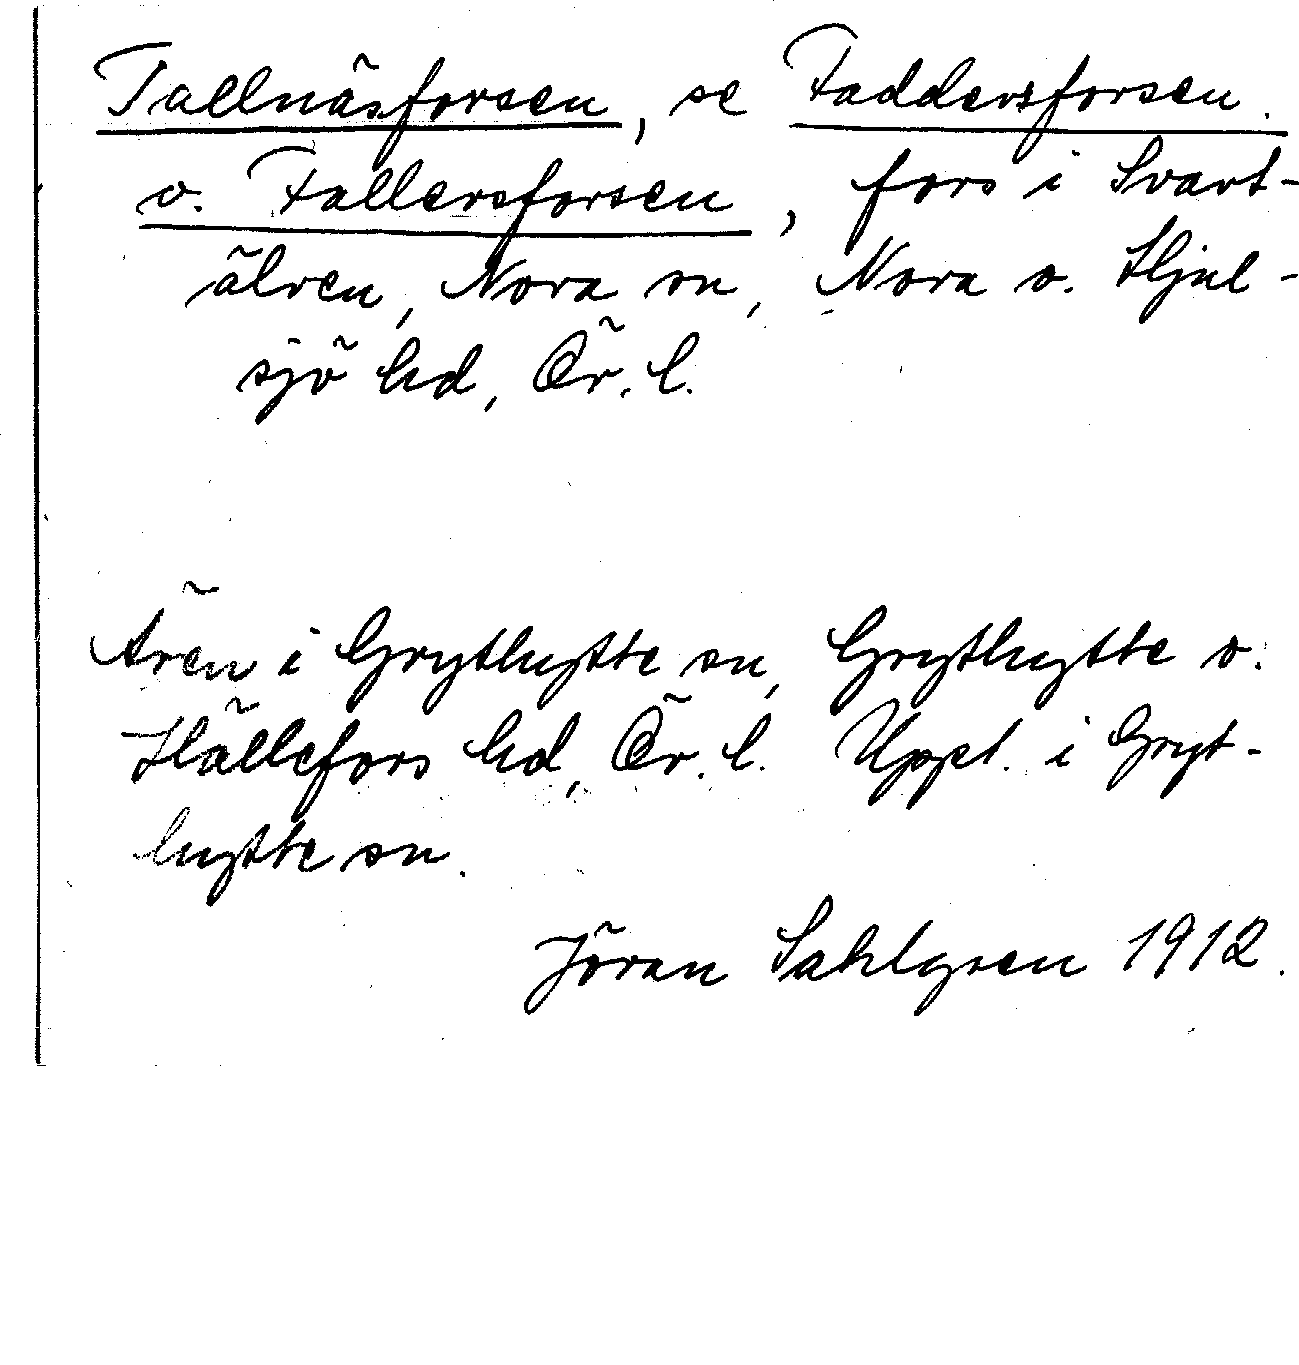 Tallnäsforsen, se Faddersforsen
o. Fallersforsen, fors i Svart-
älven, Nora sn, Nora o. Hjul-
sjö hd, Ör. l.
Ären i Grythytte sn, Grythytte o.
Hällefors hd, Ör. l. Uppt. i Gryt-
hytte sn.
Jöran Sahlgren 1912.